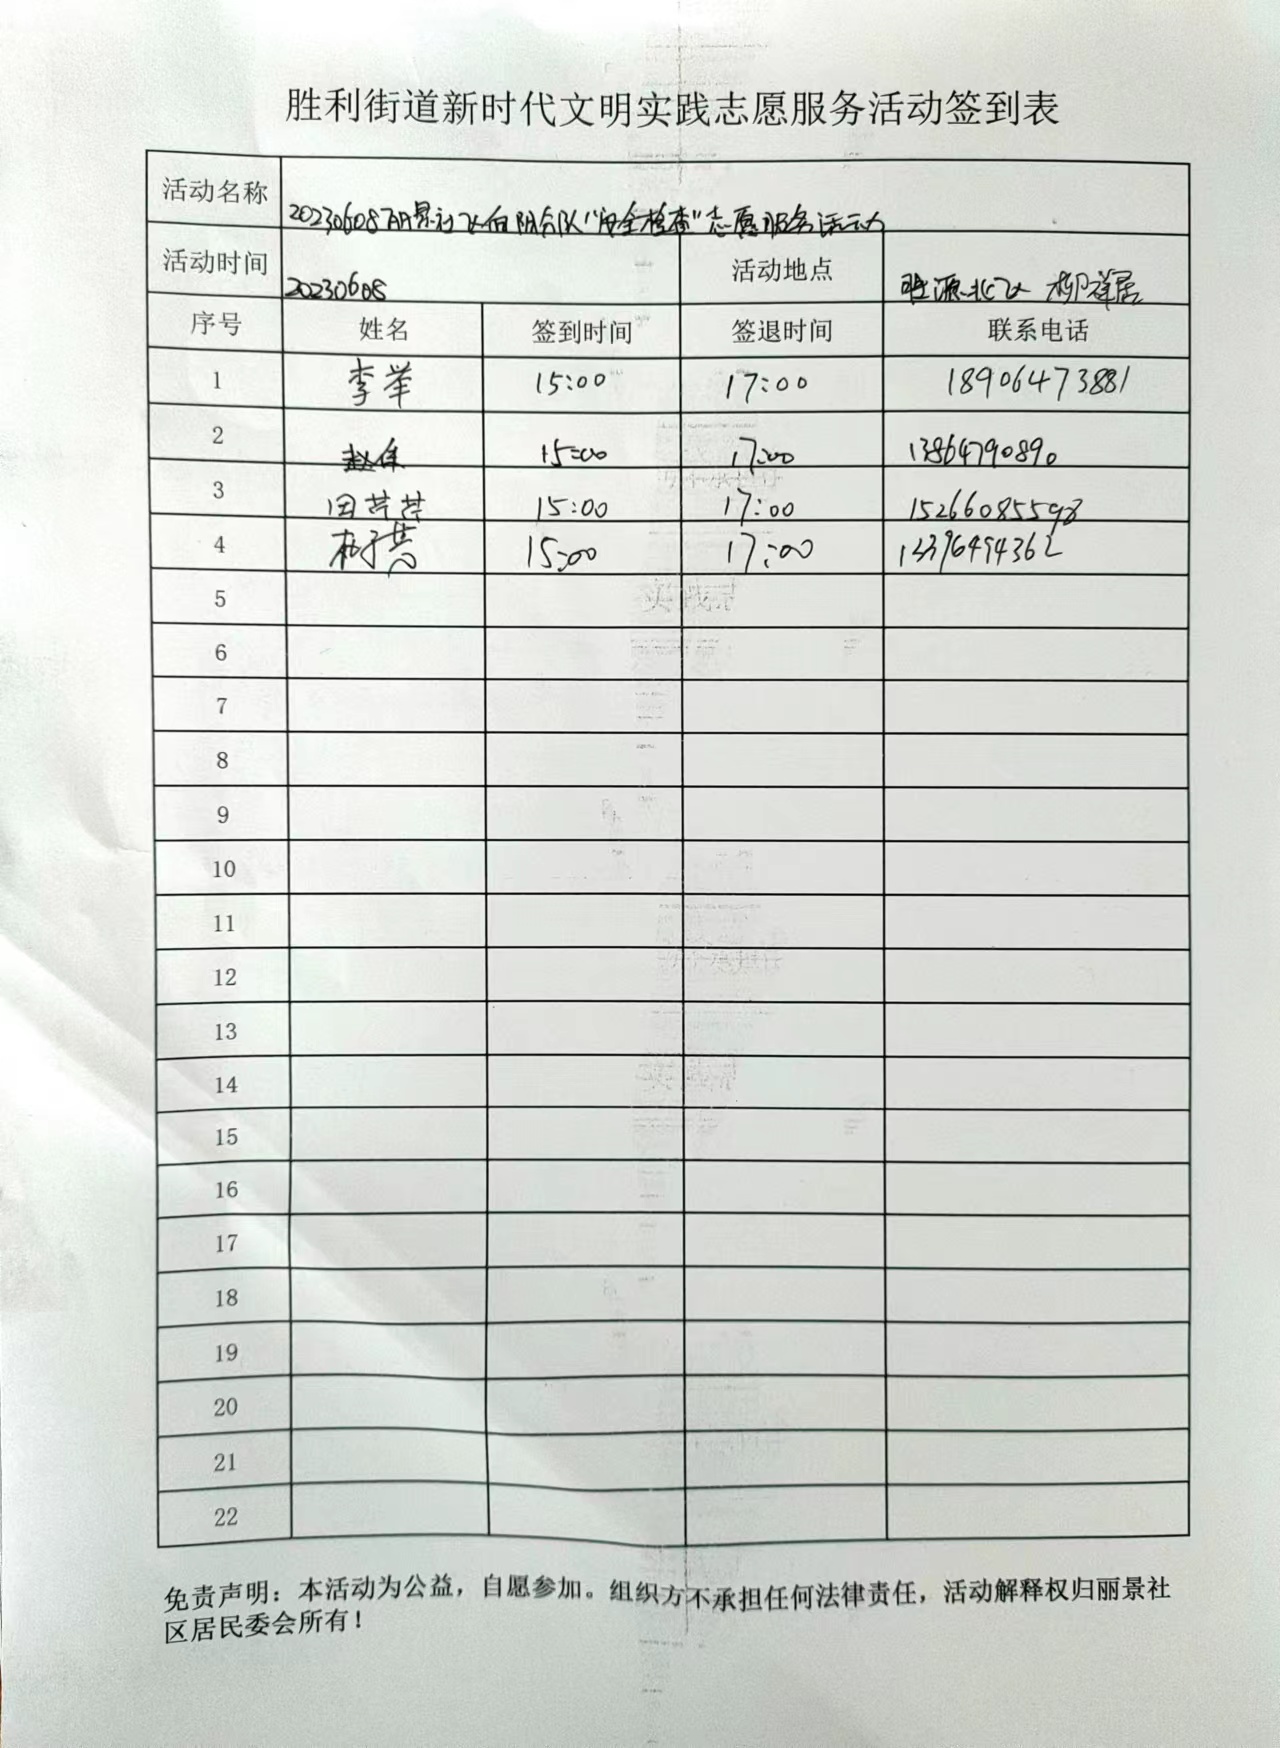 胜利街道新时代文明实践志愿服务活动签到表
活动名称 20230608丽景社区向阳分队“安全检查”志愿服务活动
活动时间 20230608 活动地点 胜源北区 柳祥居
序号 姓名 签到时间 签退时间 联系电话
1 李举 15:00 17:00 18906473881
2 赵佳 15:00 17:00 13864790890
3 田芹芹 15:00 17:00 15266085598
4 15:00 17:00
5
6
7
8
9
10
11
12
13
14
15
16
17
18
19
20
21
22
免责声明：本活动为公益，自愿参加。组织方不承担任何法律责任，活动解释权归丽景社
区居民委会所有！